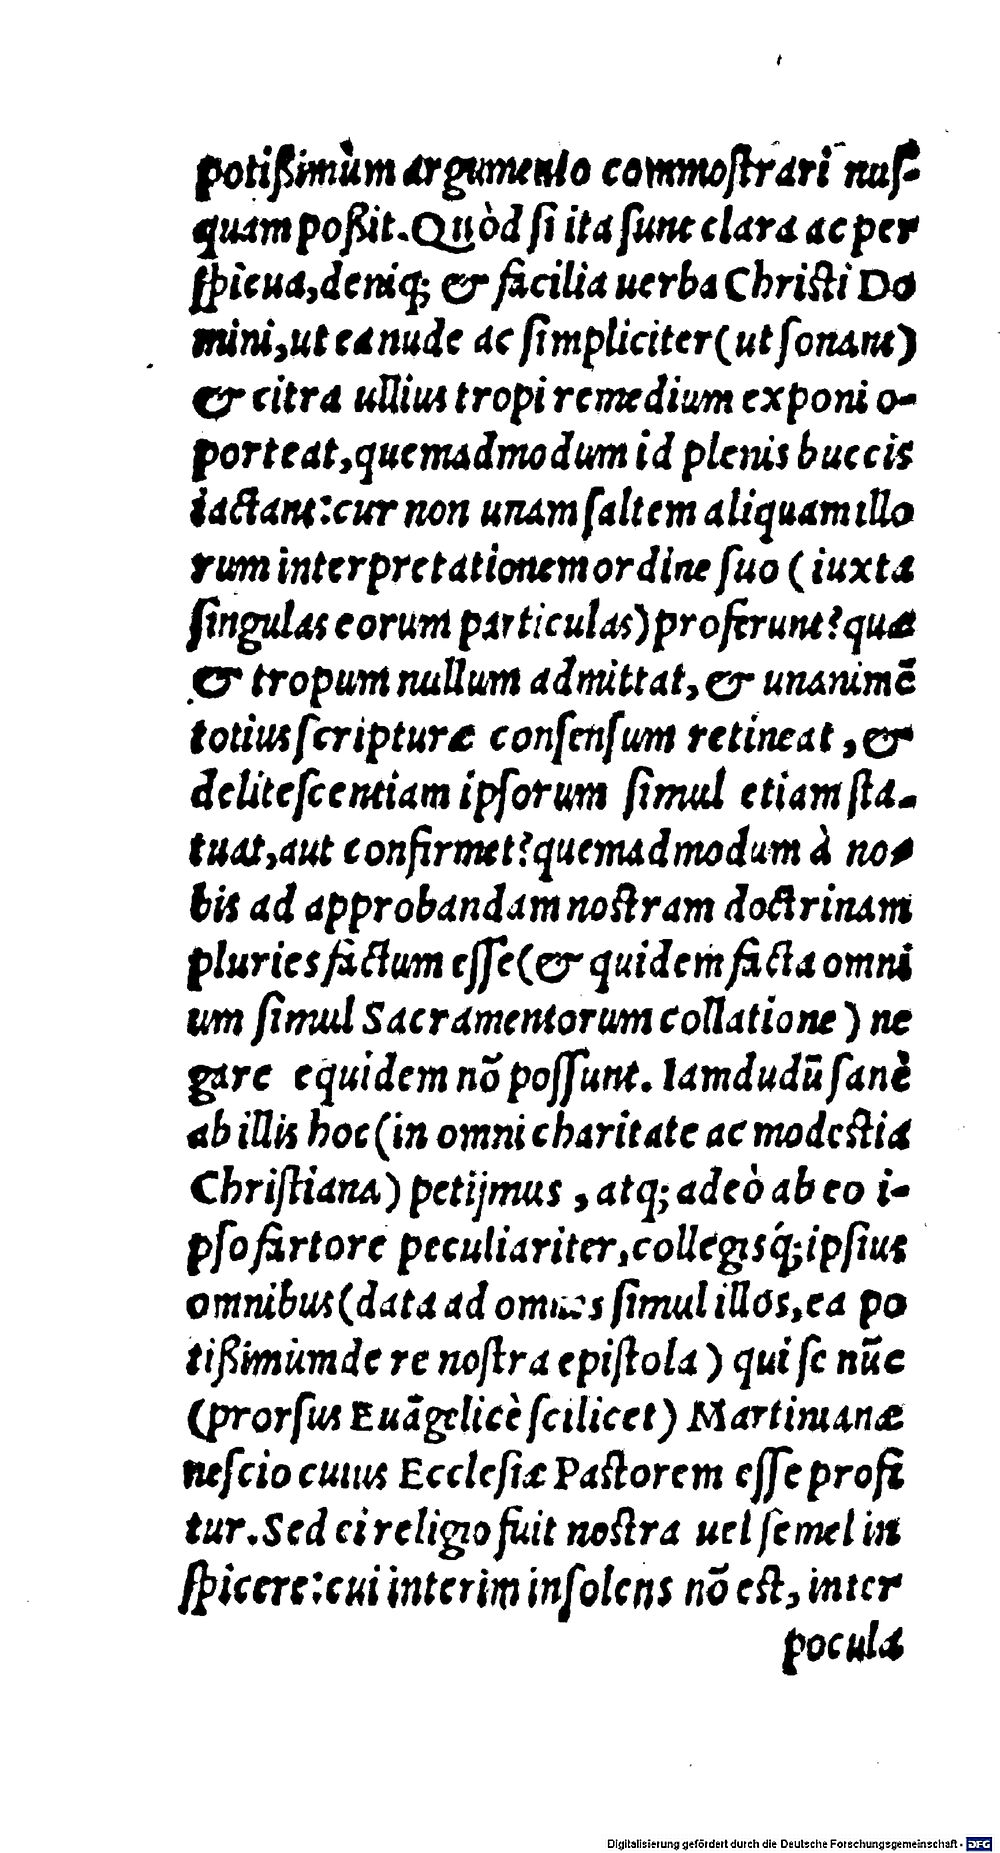 potißimùm argumento commoſtrari nuſ-
quam poßit. Quòd ſi ita ſunt clara ac per
ſpicua, deniq; & facilia uerba Chriſti Do
mini, ut ea nude ac ſimpliciter (ut ſonant)
& citra ullius tropi remedium exponi o-
porteat, quemadmodum id plenis buccis
iactant: cur non unam ſaltem aliquam illo
rum interpretationem ordine ſuo (iuxta
ſingulas eorum particulas) proferunt? quæ
& tropum nullum admittat, & unanimẽ
totius ſcripturæ conſenſum retineat, &
deliteſcentiam ipſorum ſimul etiam ſta-
tuat, aut confirmet? quemadmodum à no-
bis ad approbandam noſtram doctrinam
pluries factum eſſe (& quidem facta omni
um ſimul Sacramentorum collatione) ne
gare equidem nõ poſſunt. Iamdudũ ſanè
ab illis hoc (in omni charitate ac modeſtia
Chriſtiana) petijmus, atq; adeò ab eo i-
pſo fartore peculiariter, collegisq́; ipſius
omnibus (data ad omnes ſimul illos, ea po
tißimùm de re noſtra epiſtola) qui ſe nũc
(prorſus Euãgelicè ſcilicet) Martinianæ
neſcio cuius Eccleſiæ Paſtorem eſſe profi
tur. Sed ei religio fuit noſtra uel ſemel in
ſpicere: cui interim inſolens nõ eſt, inter
pocula
Digitalisierung gefördert durch die Deutsche Forschungsgemeinschaft - DFG